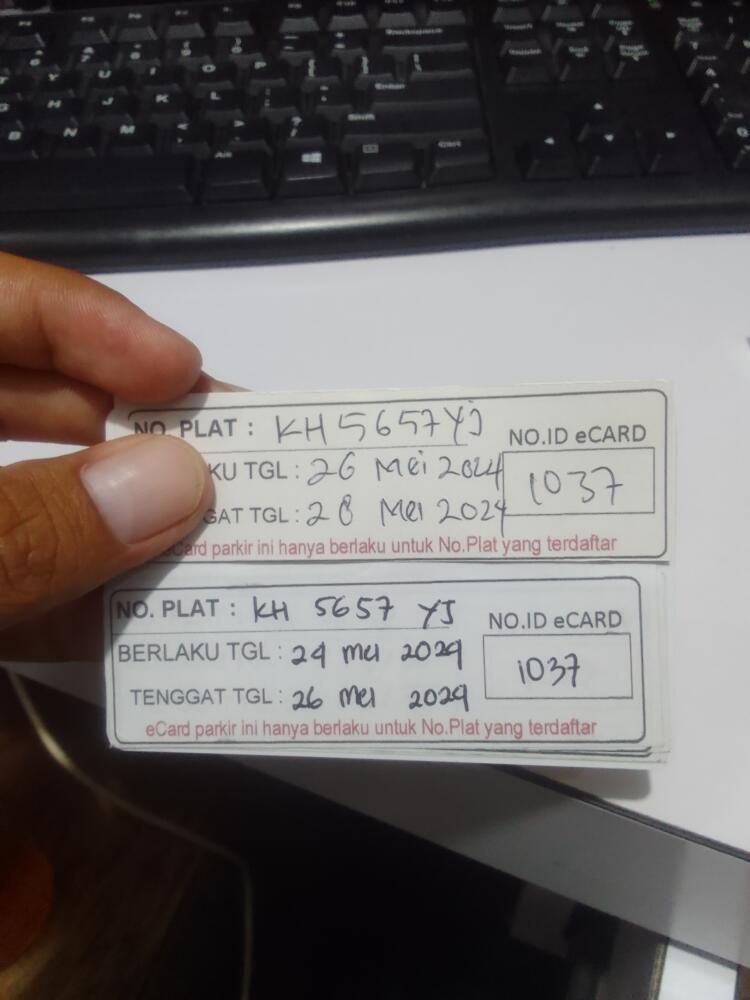 Backspace
Y U I O P
Enter
G H J K L
Shift
B N M
Alt Ctrl
NO. PLAT : KH 5657 YJ
NO.ID eCARD
KU TGL : 26 Mei 2024
1037
GAT TGL : 28 Mei 2024
eCard parkir ini hanya berlaku untuk No.Plat yang terdaftar
NO. PLAT : KH 5657 YJ
NO.ID eCARD
BERLAKU TGL : 24 mei 2024
1037
TENGGAT TGL : 26 mei 2024
eCard parkir ini hanya berlaku untuk No.Plat yang terdaftar